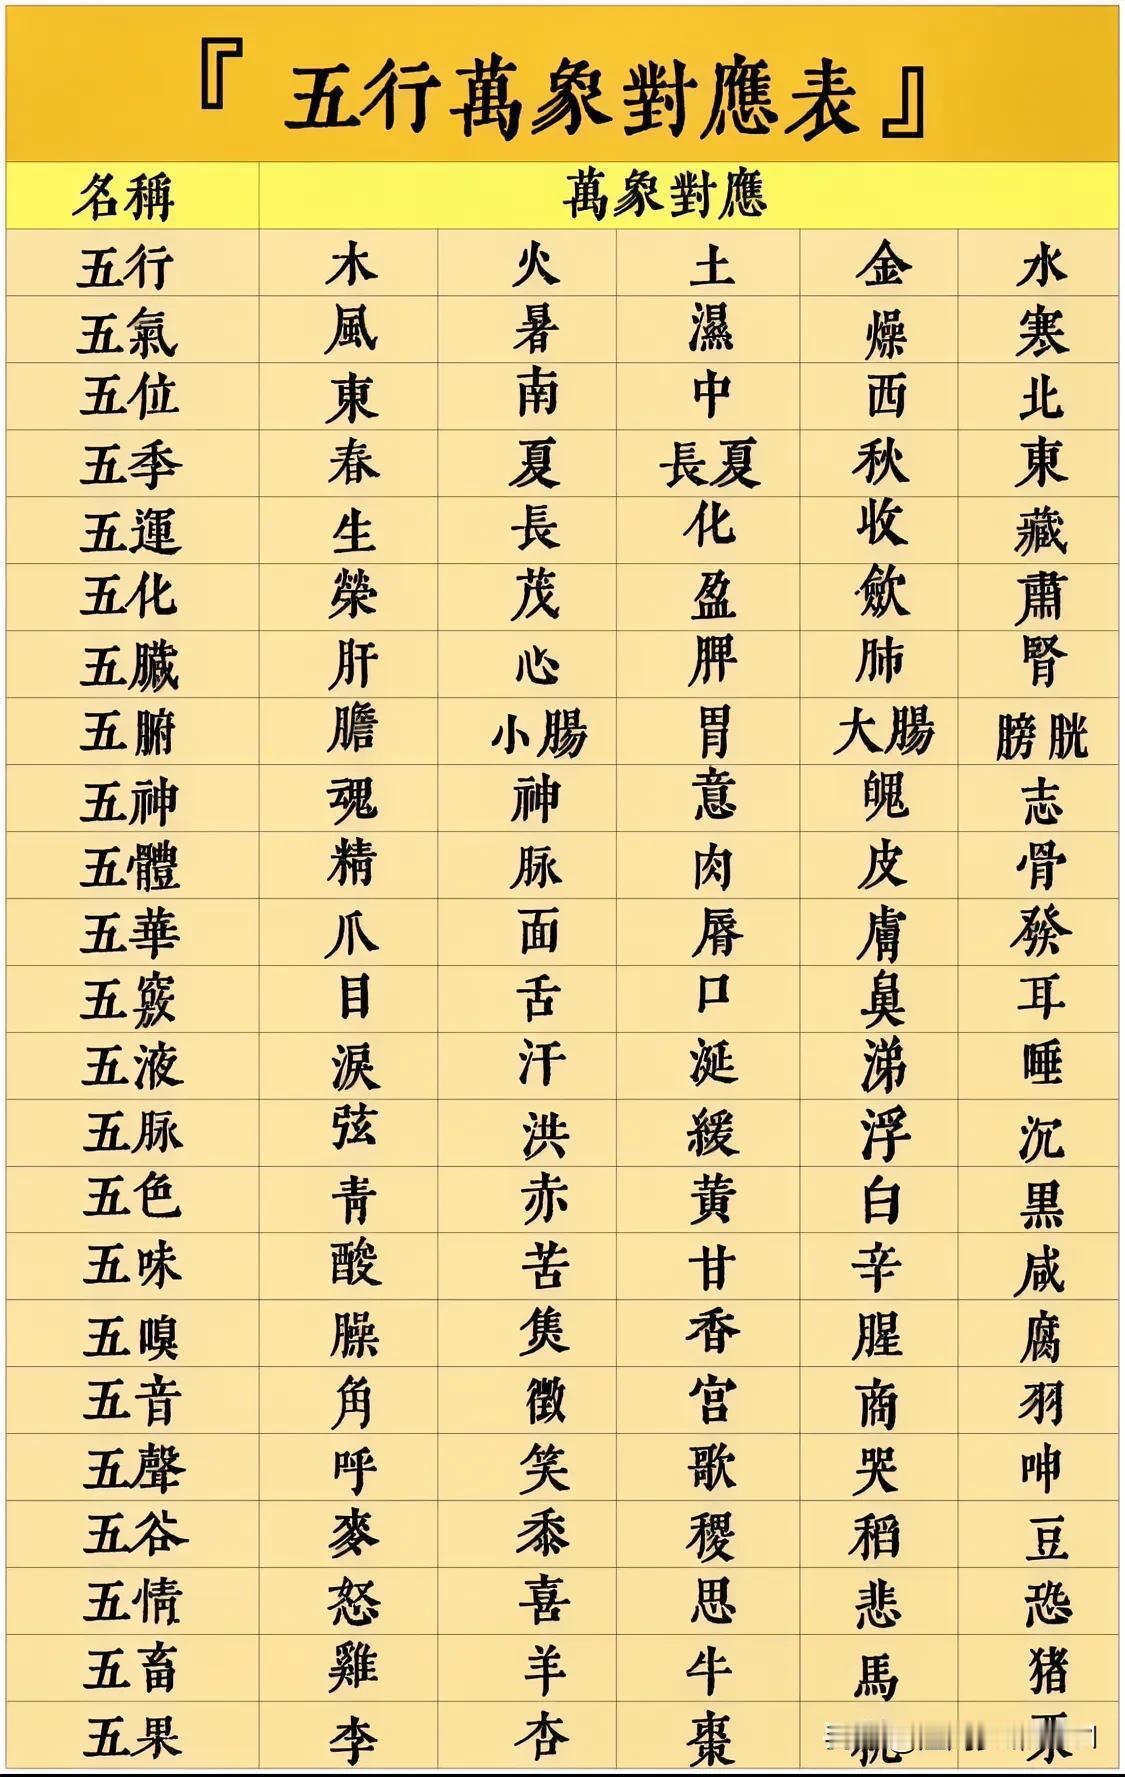 『五行萬象對應表』
名稱 萬象對應
五行 木 火 土 金 水
五氣 風 暑 濕 燥 寒
五位 東 南 中 西 北
五季 春 夏 長夏 秋 東
五運 生 長 化 收 藏
五化 榮 茂 盈 斂 肅
五臟 肝 心 脾 肺 腎
五腑 膽 小腸 胃 大腸 膀胱
五神 魂 神 意 魄 志
五體 精 脉 肉 皮 骨
五華 爪 面 脣 膚 發
五竅 目 舌 口 鼻 耳
五液 淚 汗 涎 涕 唾
五脉 弦 洪 緩 浮 沉
五色 青 赤 黃 白 黑
五味 酸 苦 甘 辛 咸
五嗅 臊 焦 香 腥 腐
五音 角 徵 宮 商 羽
五聲 呼 笑 歌 哭 呻
五谷 麥 黍 稷 稻 豆
五情 怒 喜 思 悲 恐
五畜 雞 羊 牛 馬 猪
五果 李 杏 棗